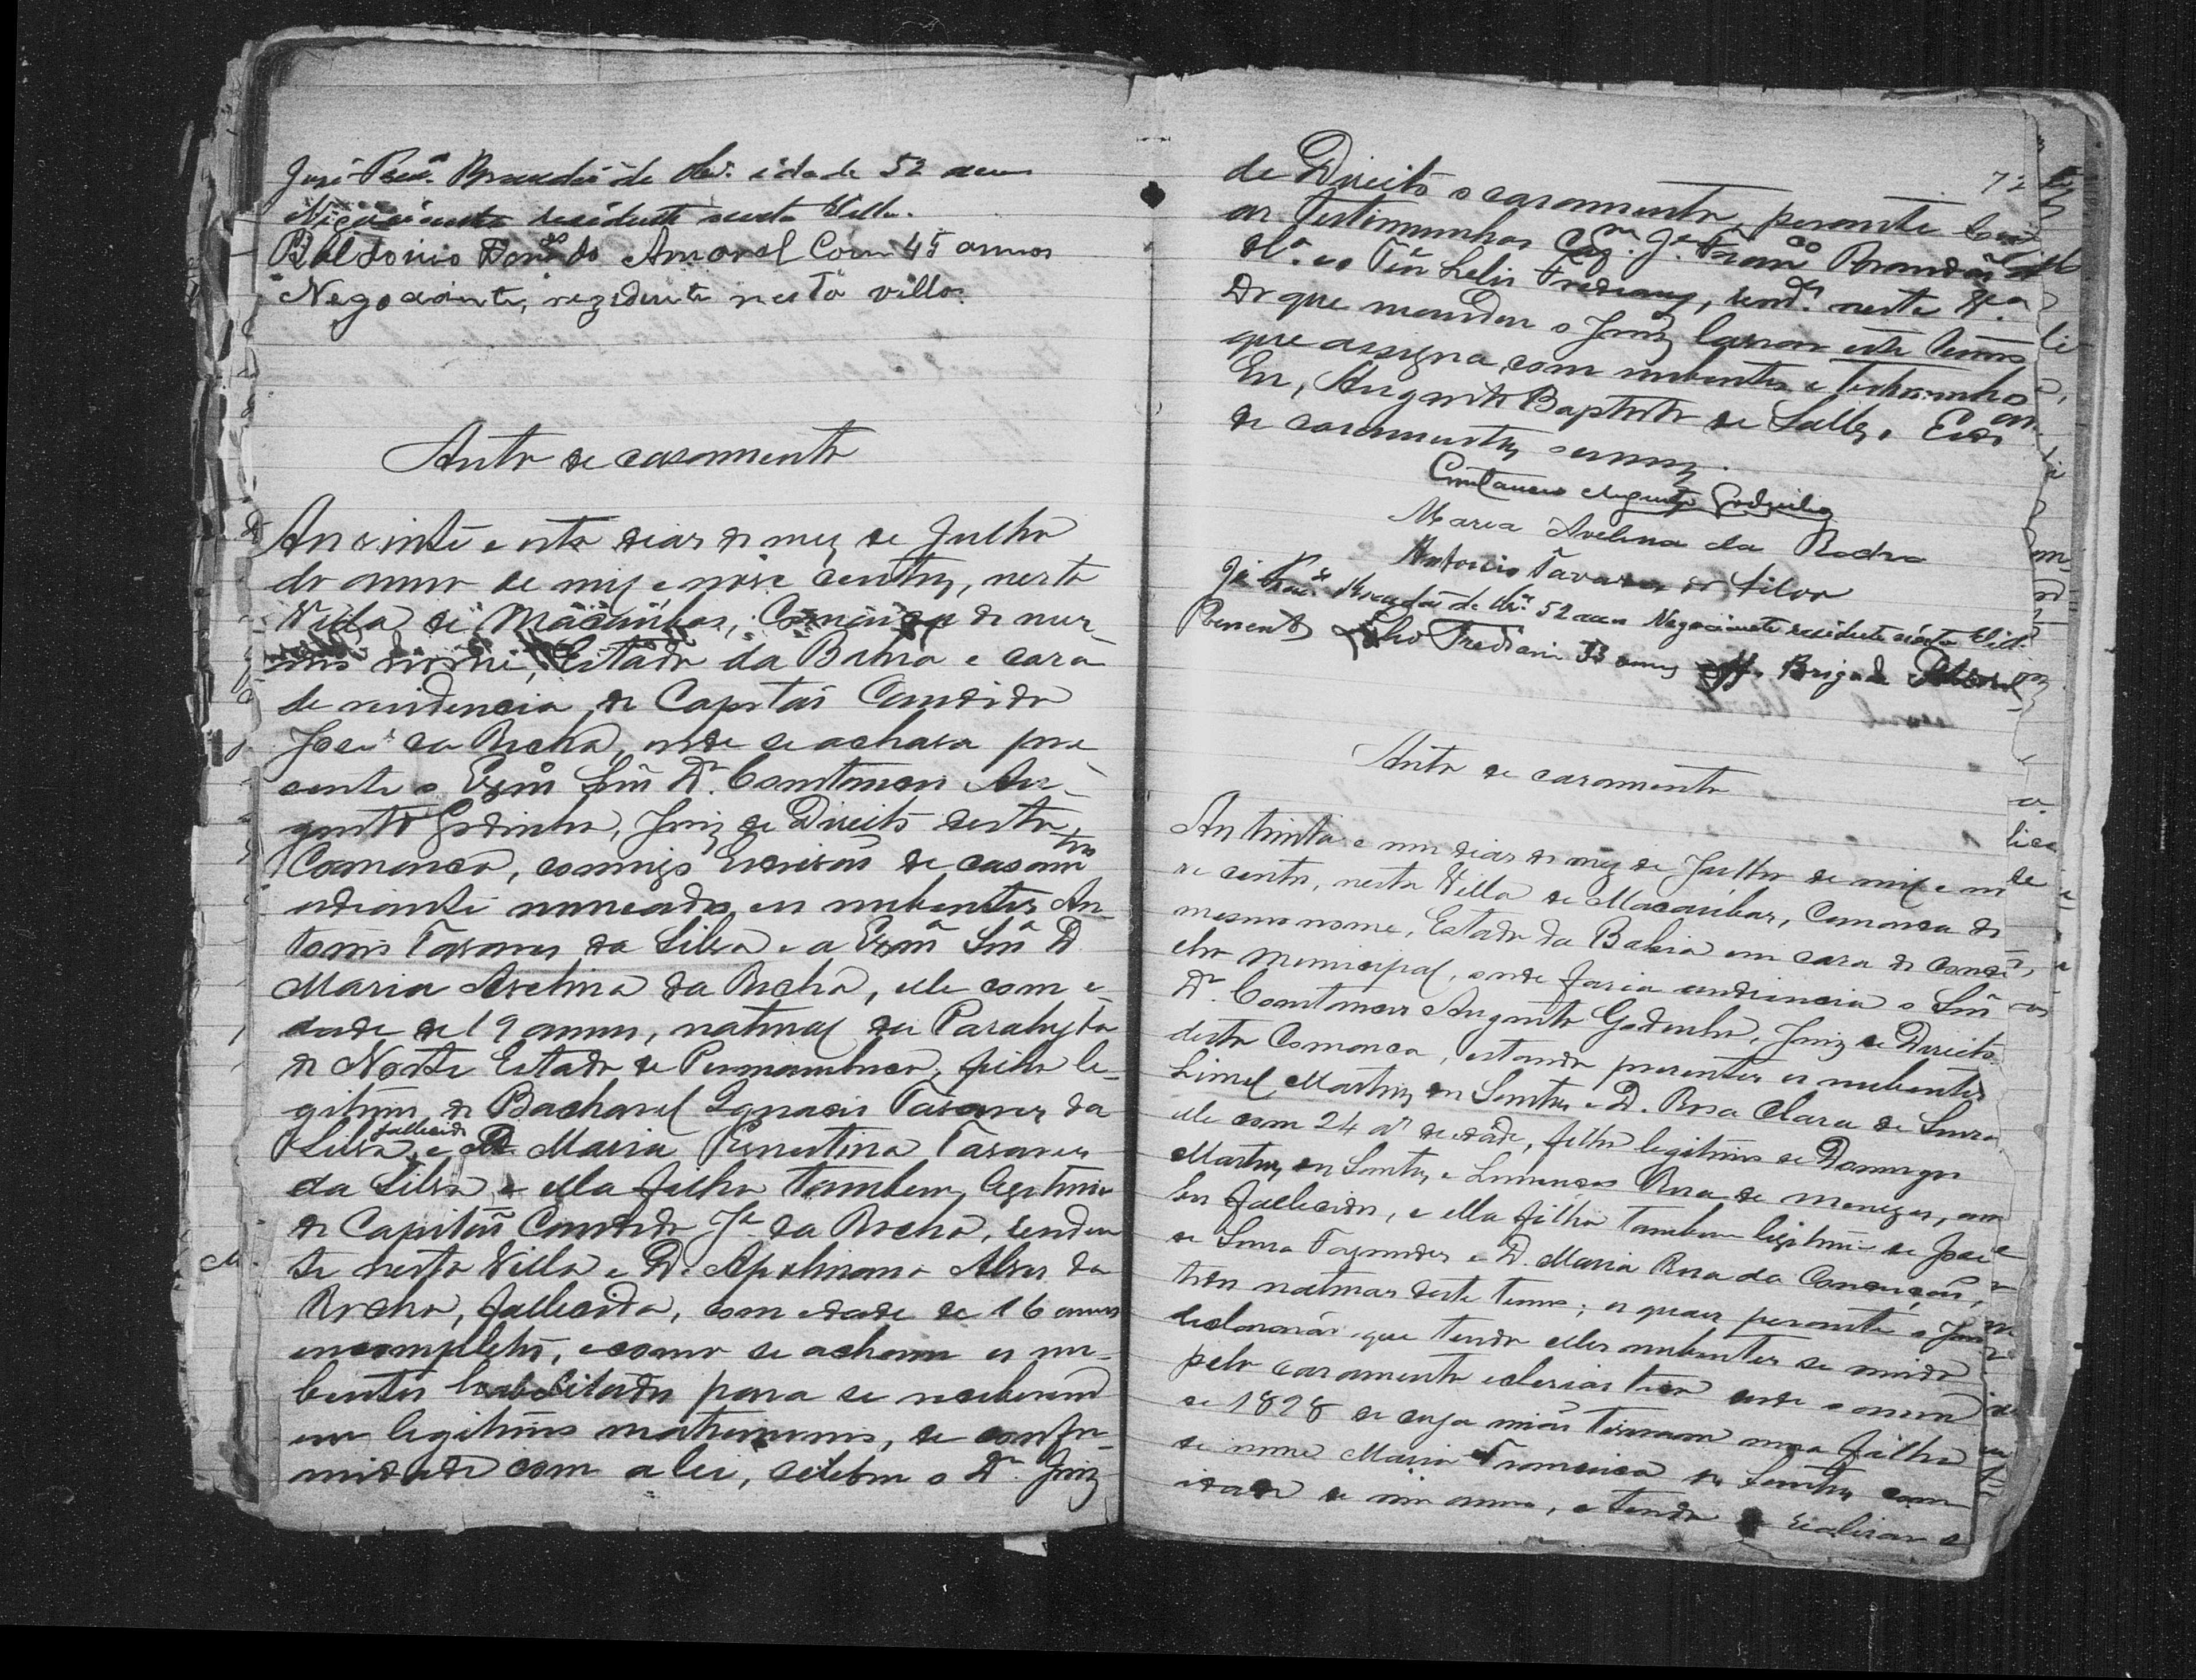 José Fran.co Brandão de Olivr.a idade 52 annos
Negociante residente nesta Villa.
Baldoino Dom.os do Amaral Com 45 annos
Negociante, rezidente nesta villa.
Auto de casamento
Aos vinte e oito dias do mez de Julho
do anno de mil e nove centos, nesta
Villa de Macaúbas, Comarca do mes-
mo nome, Estado da Bahia e casa
de residencia do Capitão Candido
José da Rocha, onde se achava pre-
sente o Exmo Snr Dr. Constancio Au-
gusto Godinho, Juiz de Direito desta
Comarca, commigo Escrivão de casamtos
adiante nomeado os nubentes An-
tonio Tavares da Silva e a Exma Snra D.
Maria Avelina da Rocha, elle com i-
dade de 19 annos, natural da Parahyba
do Norte Estado de Pernambuco, filho le-
gitimo do Bacharel Ignacio Tavares da
Silva, fallecido e D. Maria Ernestina Tavares
da Silva e ella filha tambem legitima
do Capitão Candido Je da Rocha, residen
te nesta Villa e D. Apolinaria Alves da
Rocha, fallecida, com edade de 16 annos
incompletos, e como se acham os nu-
bentes habilitados para se receberem
em legitimo matrimonio, de confor-
midade com a lei, celebra o Dr. Juiz
72
de Direito o casamento, perante
as testimunhas Cap.m Je. Franco Brandão de
Olra. e o Tte Lelis Frediany, resides. nesta Va.
Do que mandou o Juiz lavrar este termo
que assigna com nubentes e testimunhas
Eu, Augusto Baptista de Salles, Escrivão
de casamentos o escrevy.
Constancio Augusto Godinho
Maria Avelina da Rocha
Antonio Tavares da Silva
Je Franco Brandão de Olra. 52 annos Negociante residente nesta Villa.
Lelis Frediani 33 annos Brigada Policial
Auto de casamento
Aos trinta e um dias do mez de Julho de mil e no
ve centos, nesta Villa de Macaúbas, Comarca do
mesmo nome, Estado da Bahia em casa do Conse
lho Municipal, onde fazia audiencia o Snr
Dr. Constancio Augusto Godinho, Juiz de Direito
desta Comarca, estando presentes os nubentes
Lionel Martins dos Santos e D. Rosa Clara de Souza
elle com 24 as de edade, filho legitimo de Domingos
Martins dos Santos e Lourença Rosa de Menezes, am
bos fallecidos, e ella filha tambem legitima de José
de Souza Fagundes e D. Maria Rosa da Conceição,
todos naturaes deste termo; os quaes perante o Juiz
declararão que tendo elles nubentes se unido
pelo casamento eclesiastico desde o anno
de 1898 de cuja união tiveram uma filha
de nome Maria Francisca dos Santos com
idade de um anno, e tendo realisar o